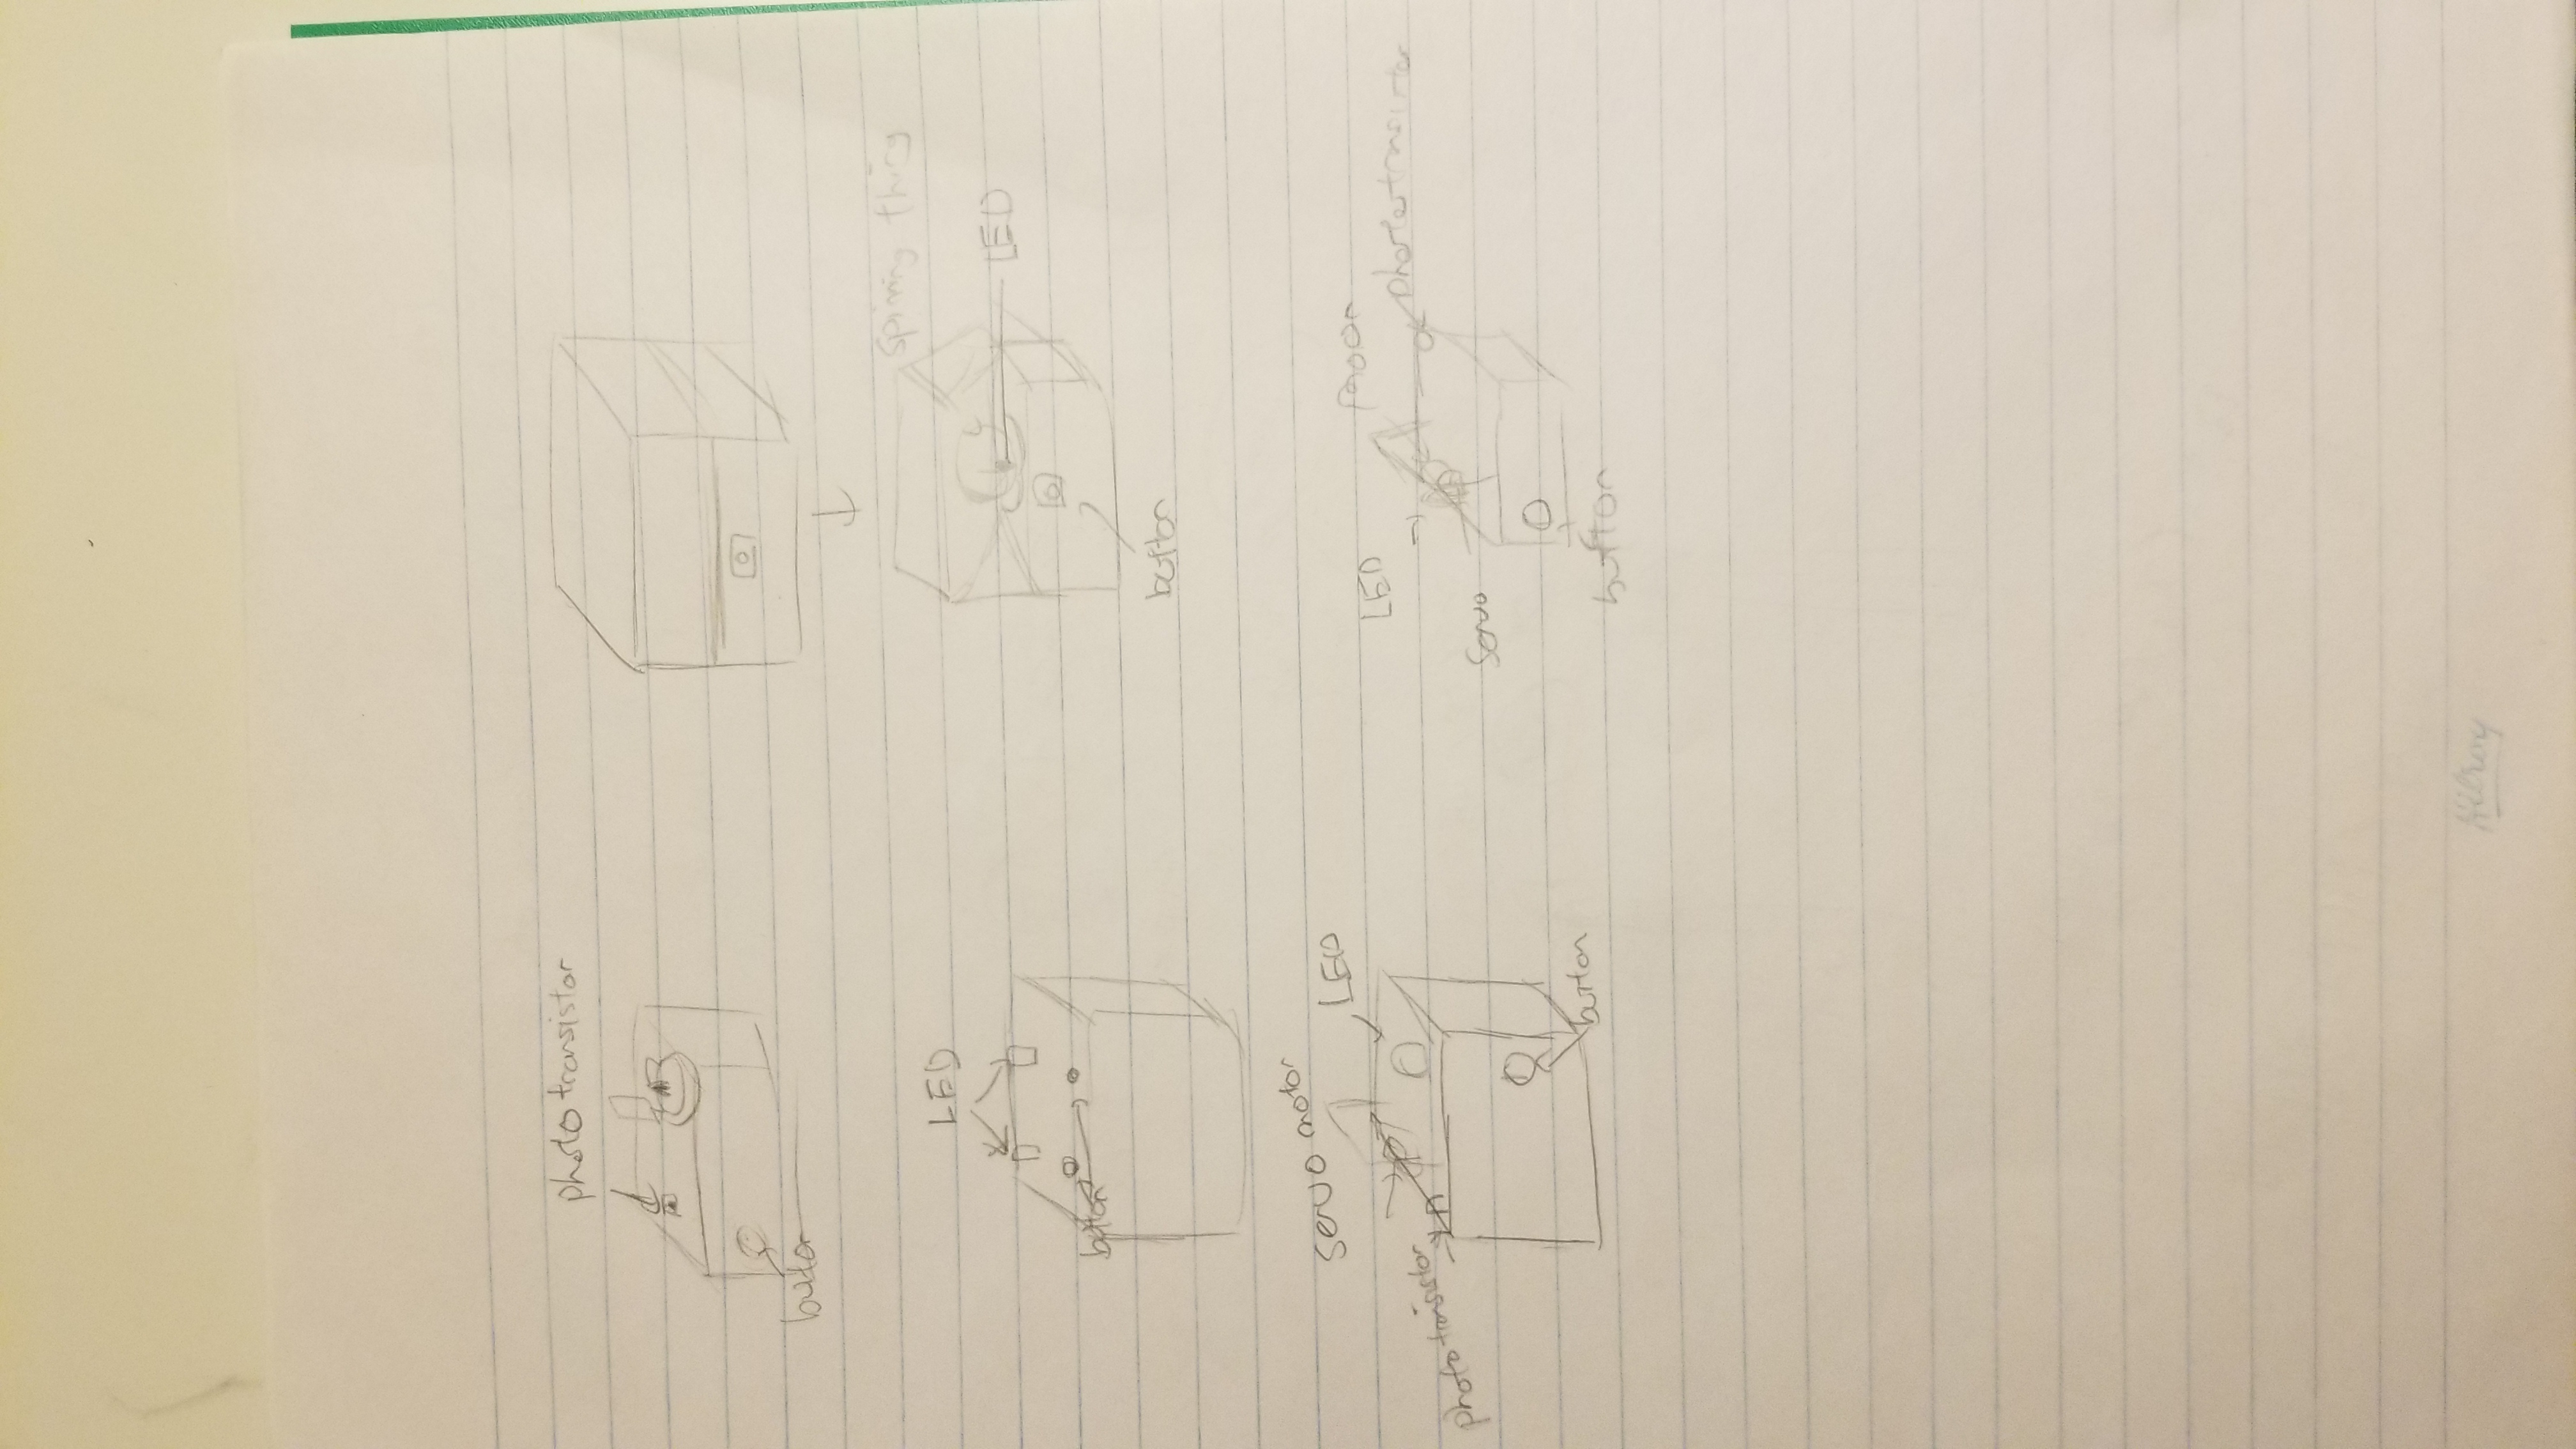 photo transistor
button
spinning thing
LED
LED
button
button
servo motor
LED
photo transistor
button
LED
moon
phototransistor
servo
button
Hilroy